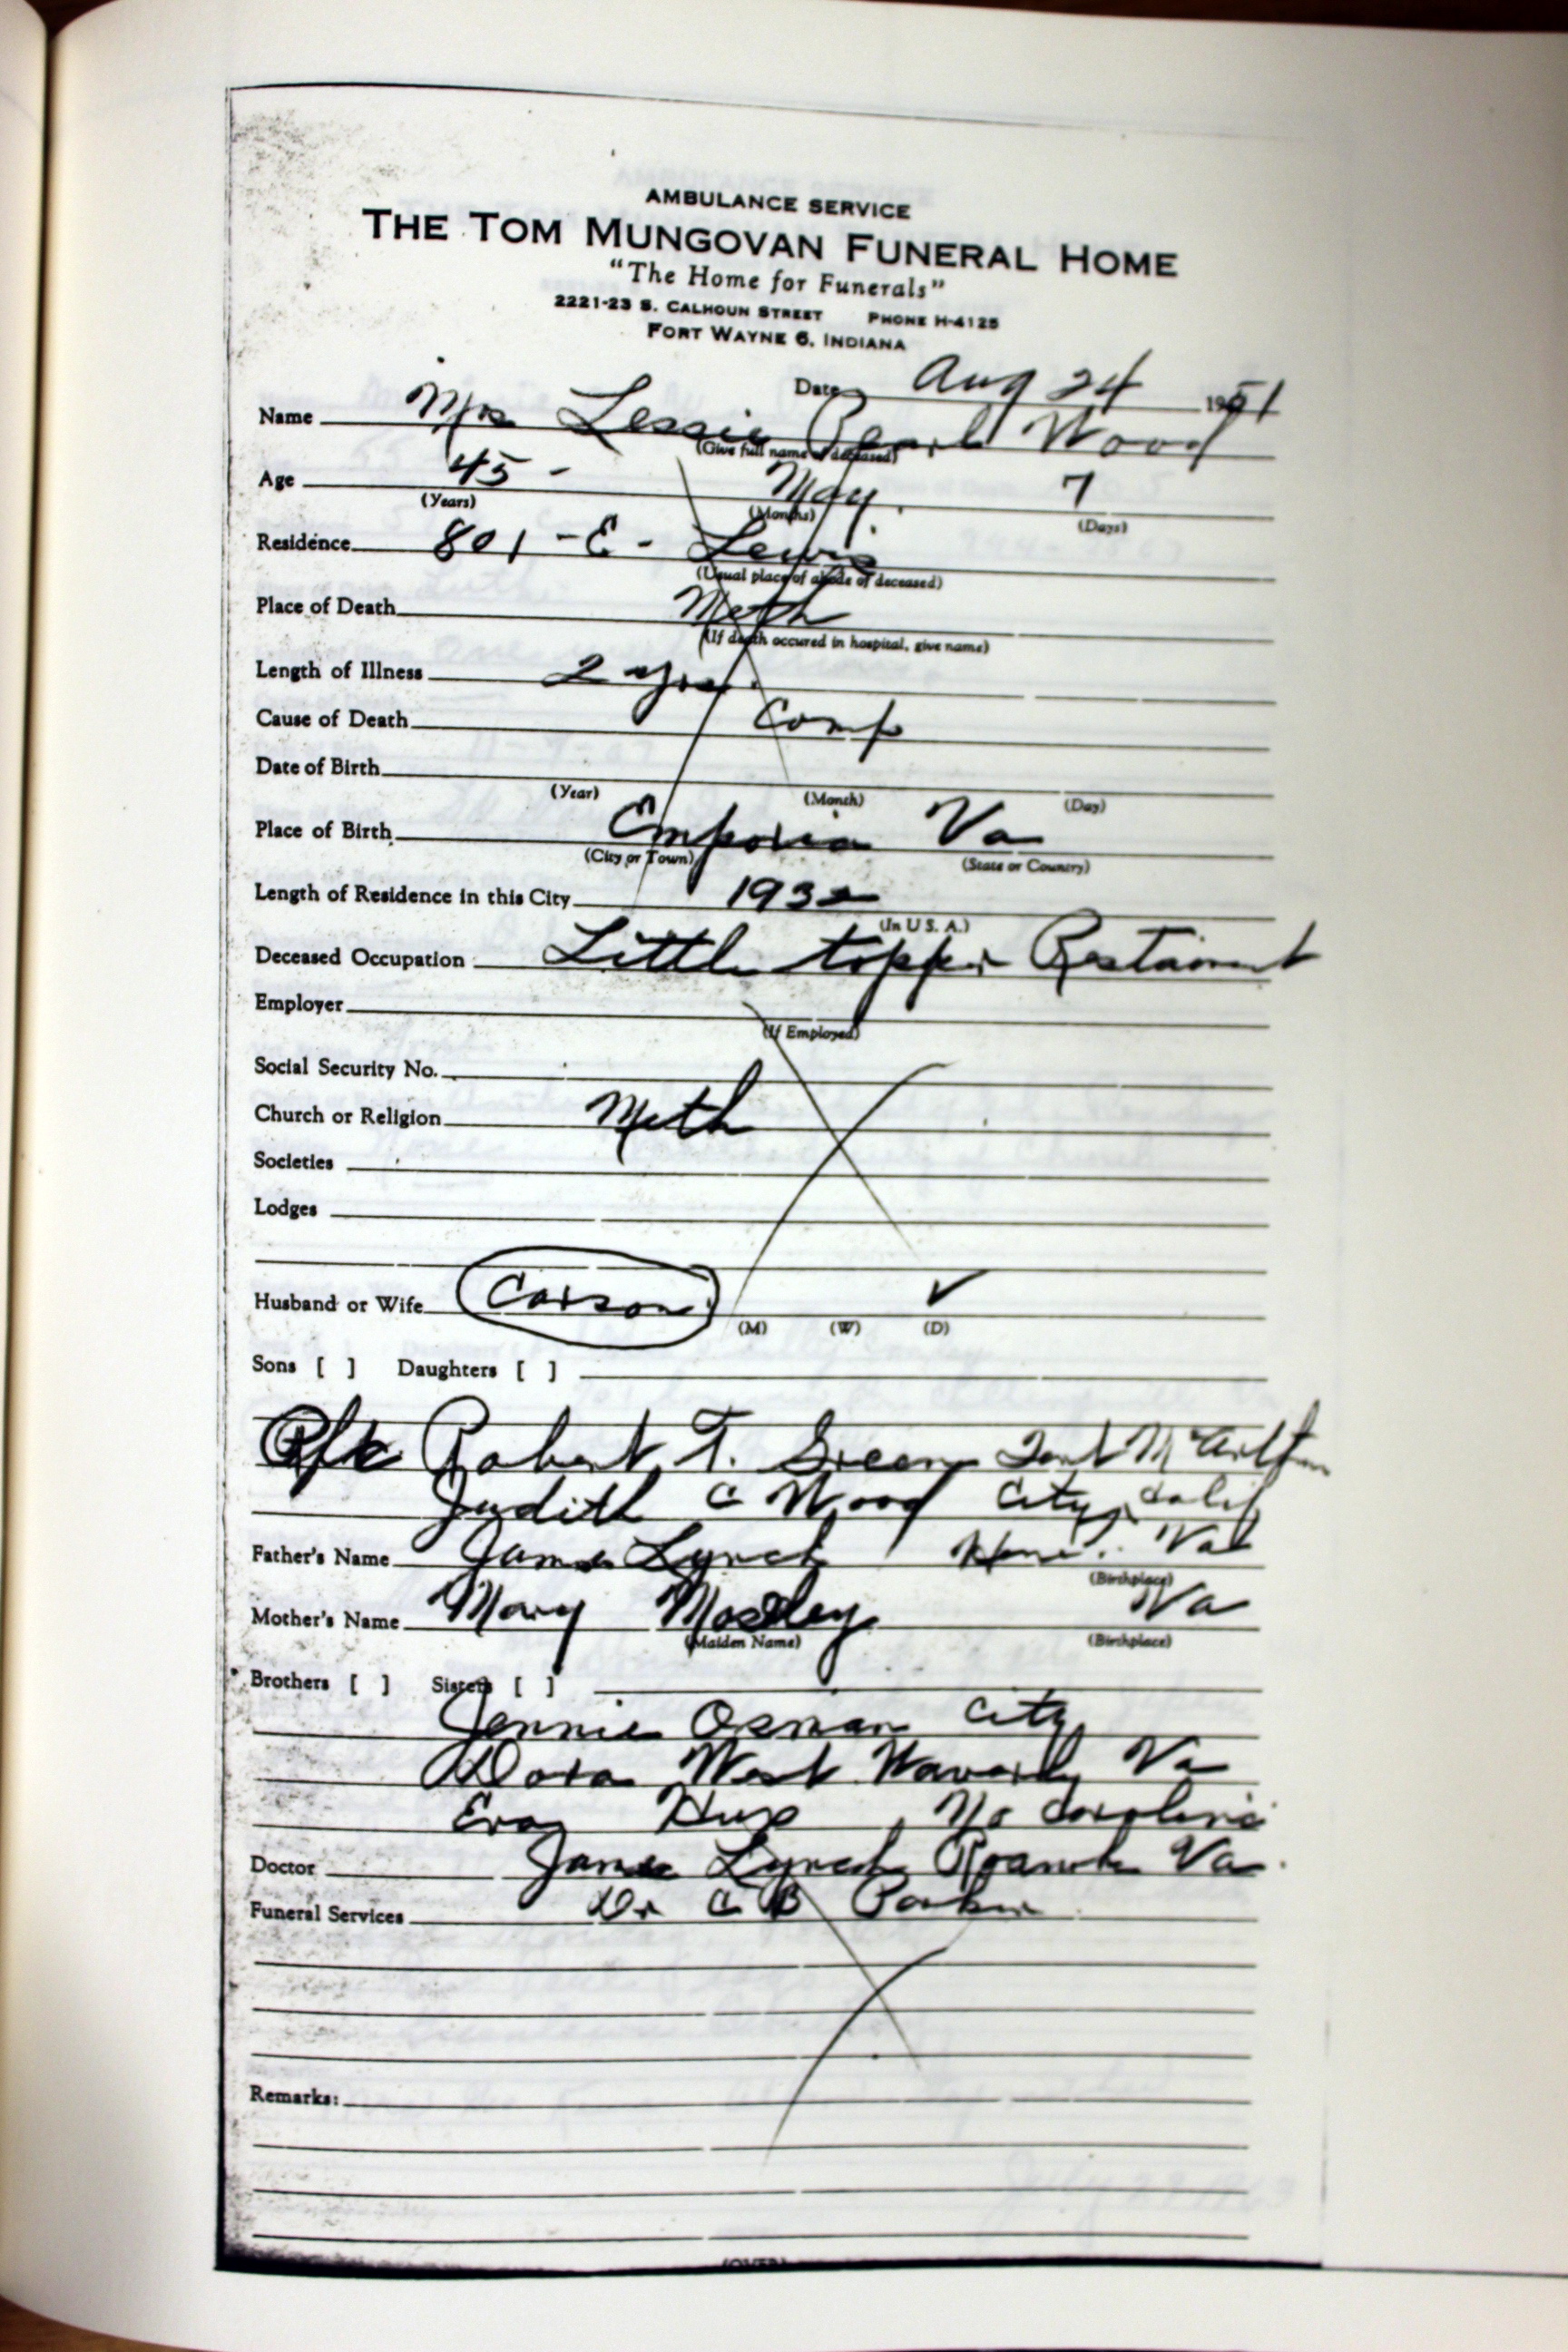 AMBULANCE SERVICE
THE TOM MUNGOVAN FUNERAL HOME
"The Home for Funerals"
2221-23 S. CALHOUN STREET PHONE H-4125
FORT WAYNE 6, INDIANA
Date Aug 24 1951
Name Mrs Lessie Pearl Wood
(Give full name of deceased)
Age 45 - May 7
(Years) (Months) (Days)
Residence 801 - E - Lewis
(Usual place of abode of deceased)
Place of Death Meth
(If death occured in hospital, give name)
Length of Illness 2 yrs.
Cause of Death Comp
Date of Birth
(Year) (Month) (Day)
Place of Birth Emporia Va
(City or Town) (State or Country)
Length of Residence in this City 1932
(In U S. A.)
Deceased Occupation Little topper Restaurant
Employer
(If Employed)
Social Security No.
Church or Religion Meth
Societies
Lodges
Husband or Wife Carson
(M) (W) (D) ✓
Sons [ ] Daughters [ ]
Pfc Robert T. Green
Judith C Wood City, Calif
Father's Name James Lynch Va
(Birthplace)
Mother's Name Mary Mosley Va
(Maiden Name) (Birthplace)
Brothers [ ] Sisters [ ]
Jennie Osman City
Dora West Waverly Va
Eva Hux No Carolina
Doctor James Lynch Roanoke Va.
Funeral Services Dr C B Parker
Remarks:
(OVER)